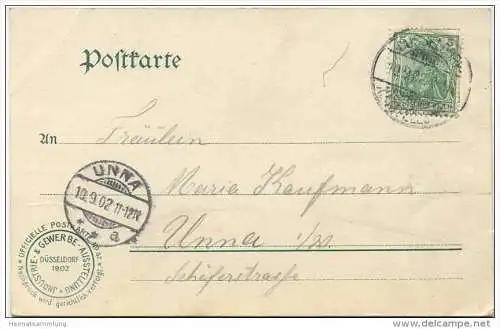 Postkarte
An Fräulein
UNNA
10.9.02.11-12N
* * a
Maria Kaufmann
Unna i/W.
Schäferstrasse
* OFFICIELLE POSTKARTE
INDUSTRIE- & GEWERBE-AUSSTELLUNG
DÜSSELDORF
1902
Nachdruck wird gerichtlich verfolgt.
Heimatsammlung